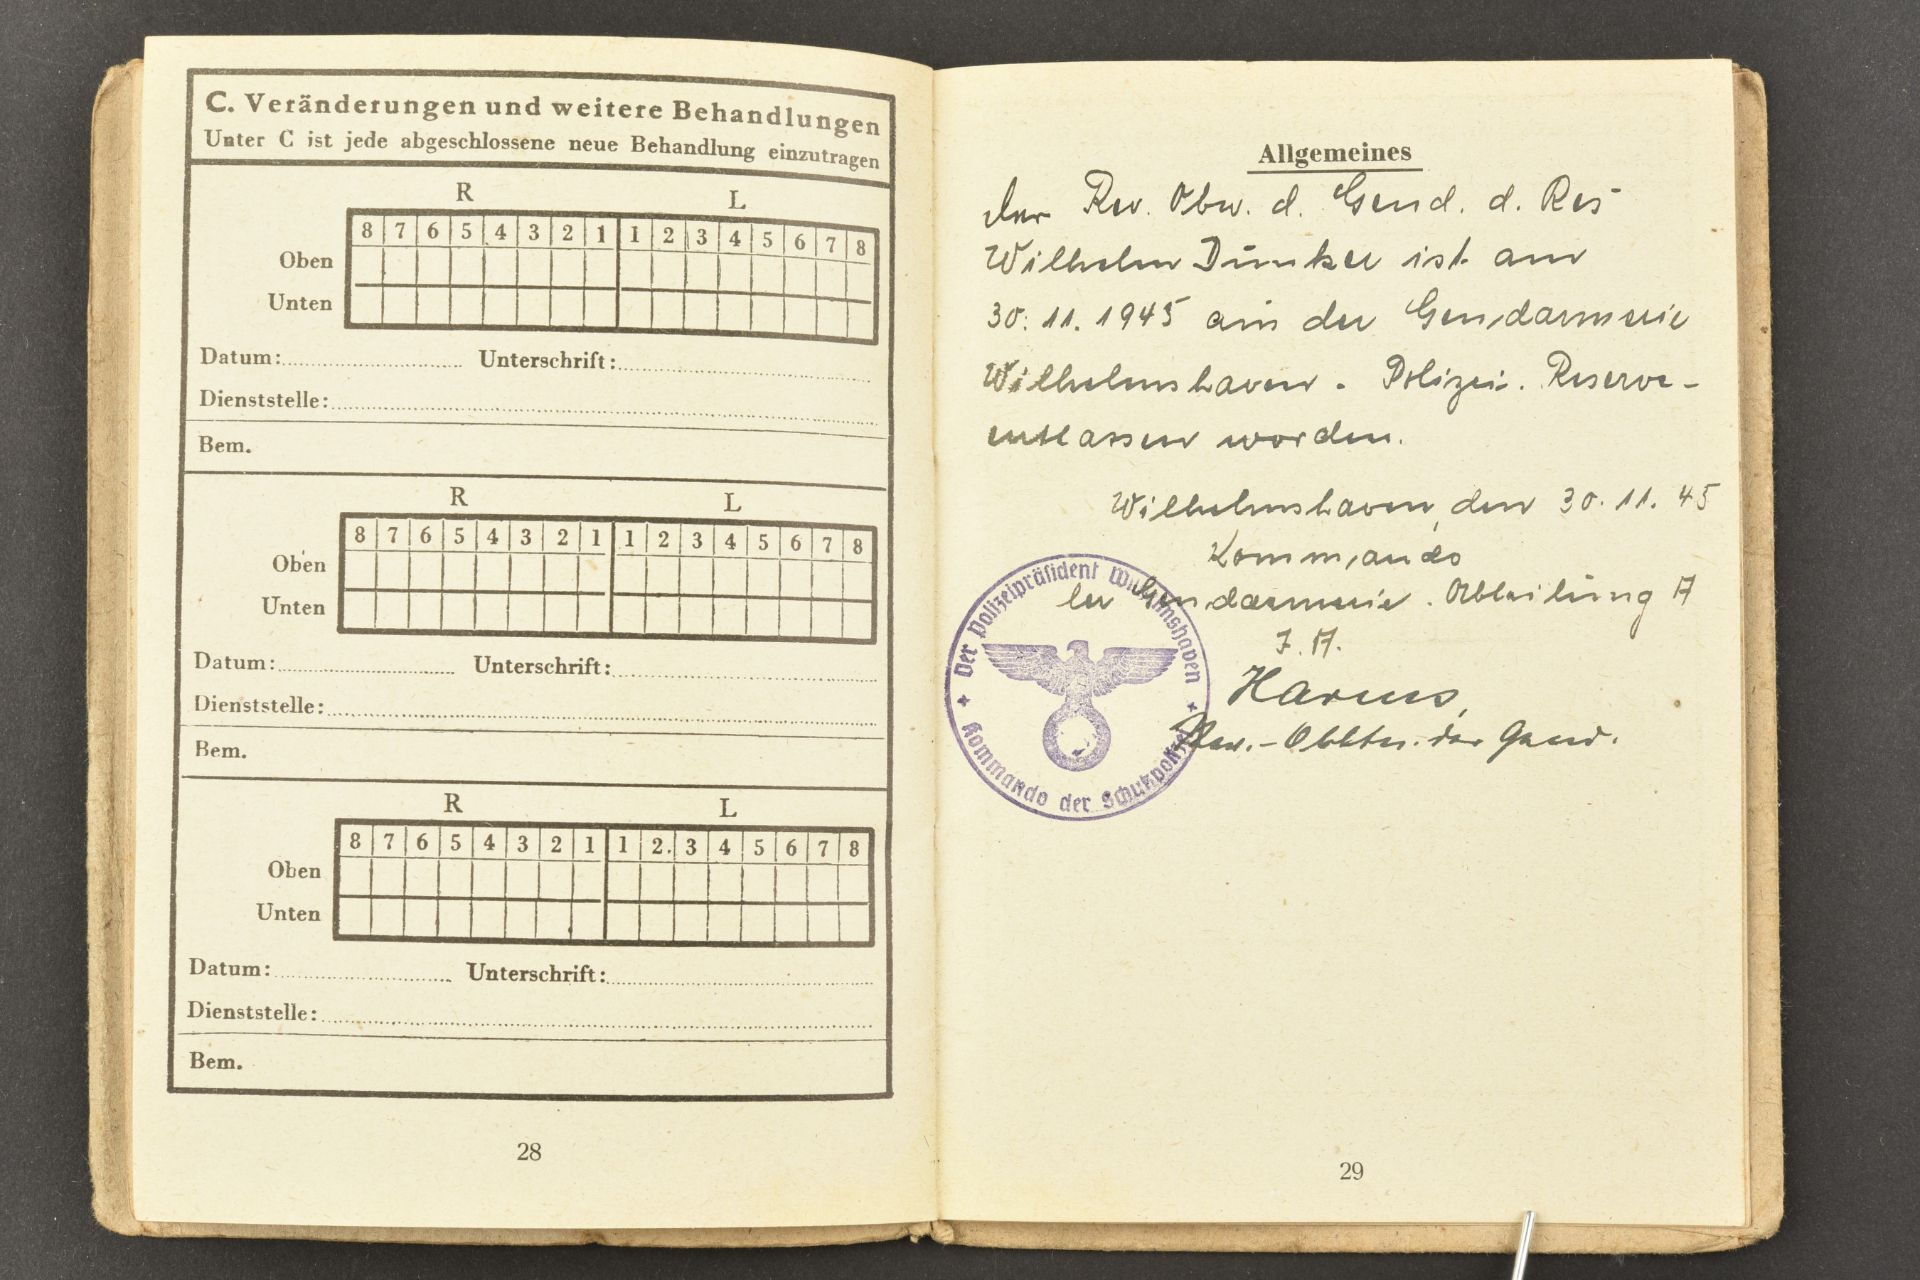 C. Veränderungen und weitere Behandlungen
Unter C ist jede abgeschlossene neue Behandlung einzutragen
R L
8 7 6 5 4 3 2 1 1 2 3 4 5 6 7 8
Oben
Unten
Datum: Unterschrift:
Dienststelle:
Bem.
R L
8 7 6 5 4 3 2 1 1 2 3 4 5 6 7 8
Oben
Unten
Datum: Unterschrift:
Dienststelle:
Bem.
R L
8 7 6 5 4 3 2 1 1 2 3 4 5 6 7 8
Oben
Unten
Datum: Unterschrift:
Dienststelle:
Bem.
28
Allgemeines
Der Rev. Obw. d. Gend. d. Res
Wilhelm Dunker ist am
30.11.1945 aus der Gendarmerie
Wilhelmshaven - Polizei-Reserve-
entlassen worden.
Wilhelmshaven, den 30.11.45
Kommando
der Gendarmerie-Abteilung A
I.A.
Rev.- der Gend.
Der Polizeipräsident Wilhelmshaven
Kommando der Schutzpolizei
29